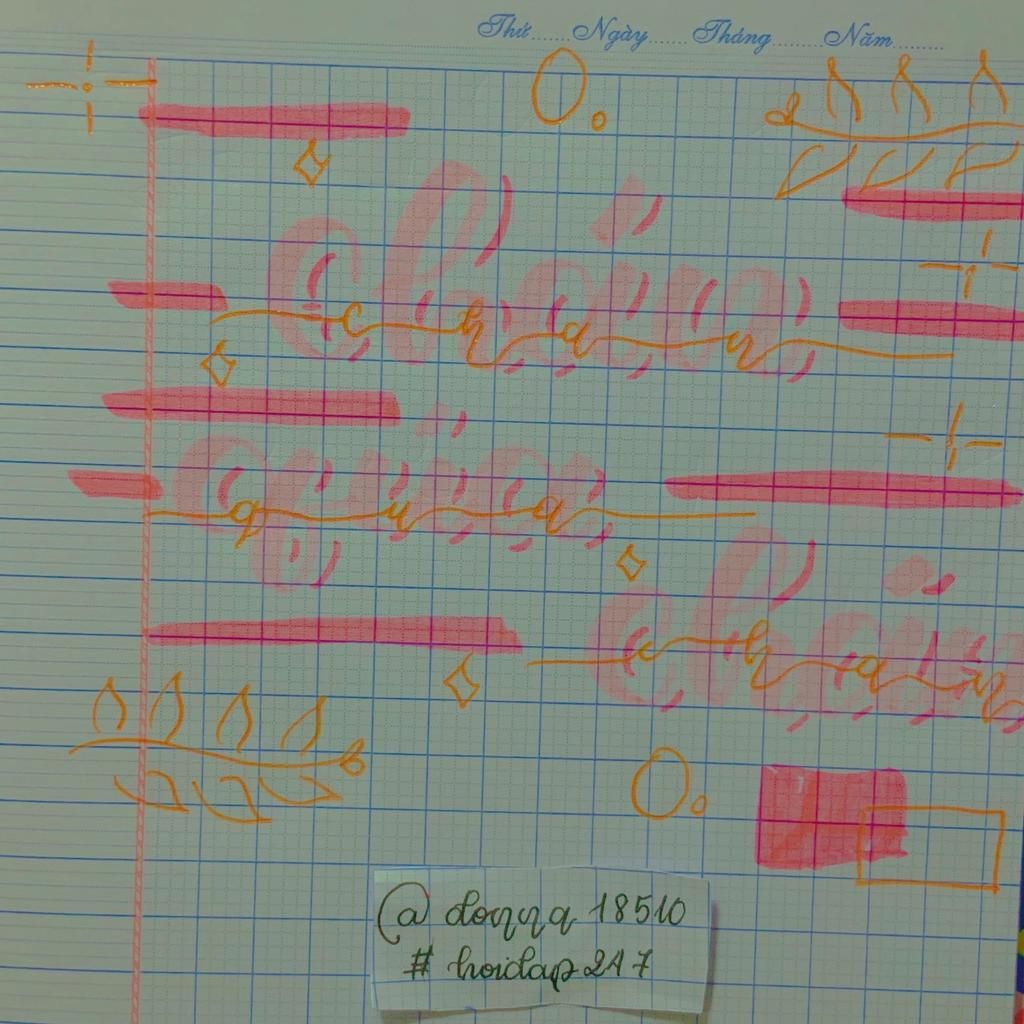 Thứ......Ngày......Tháng........Năm.........
chán
chan
quá
qua
chán
chan
@ donna 18510
# hoidap247